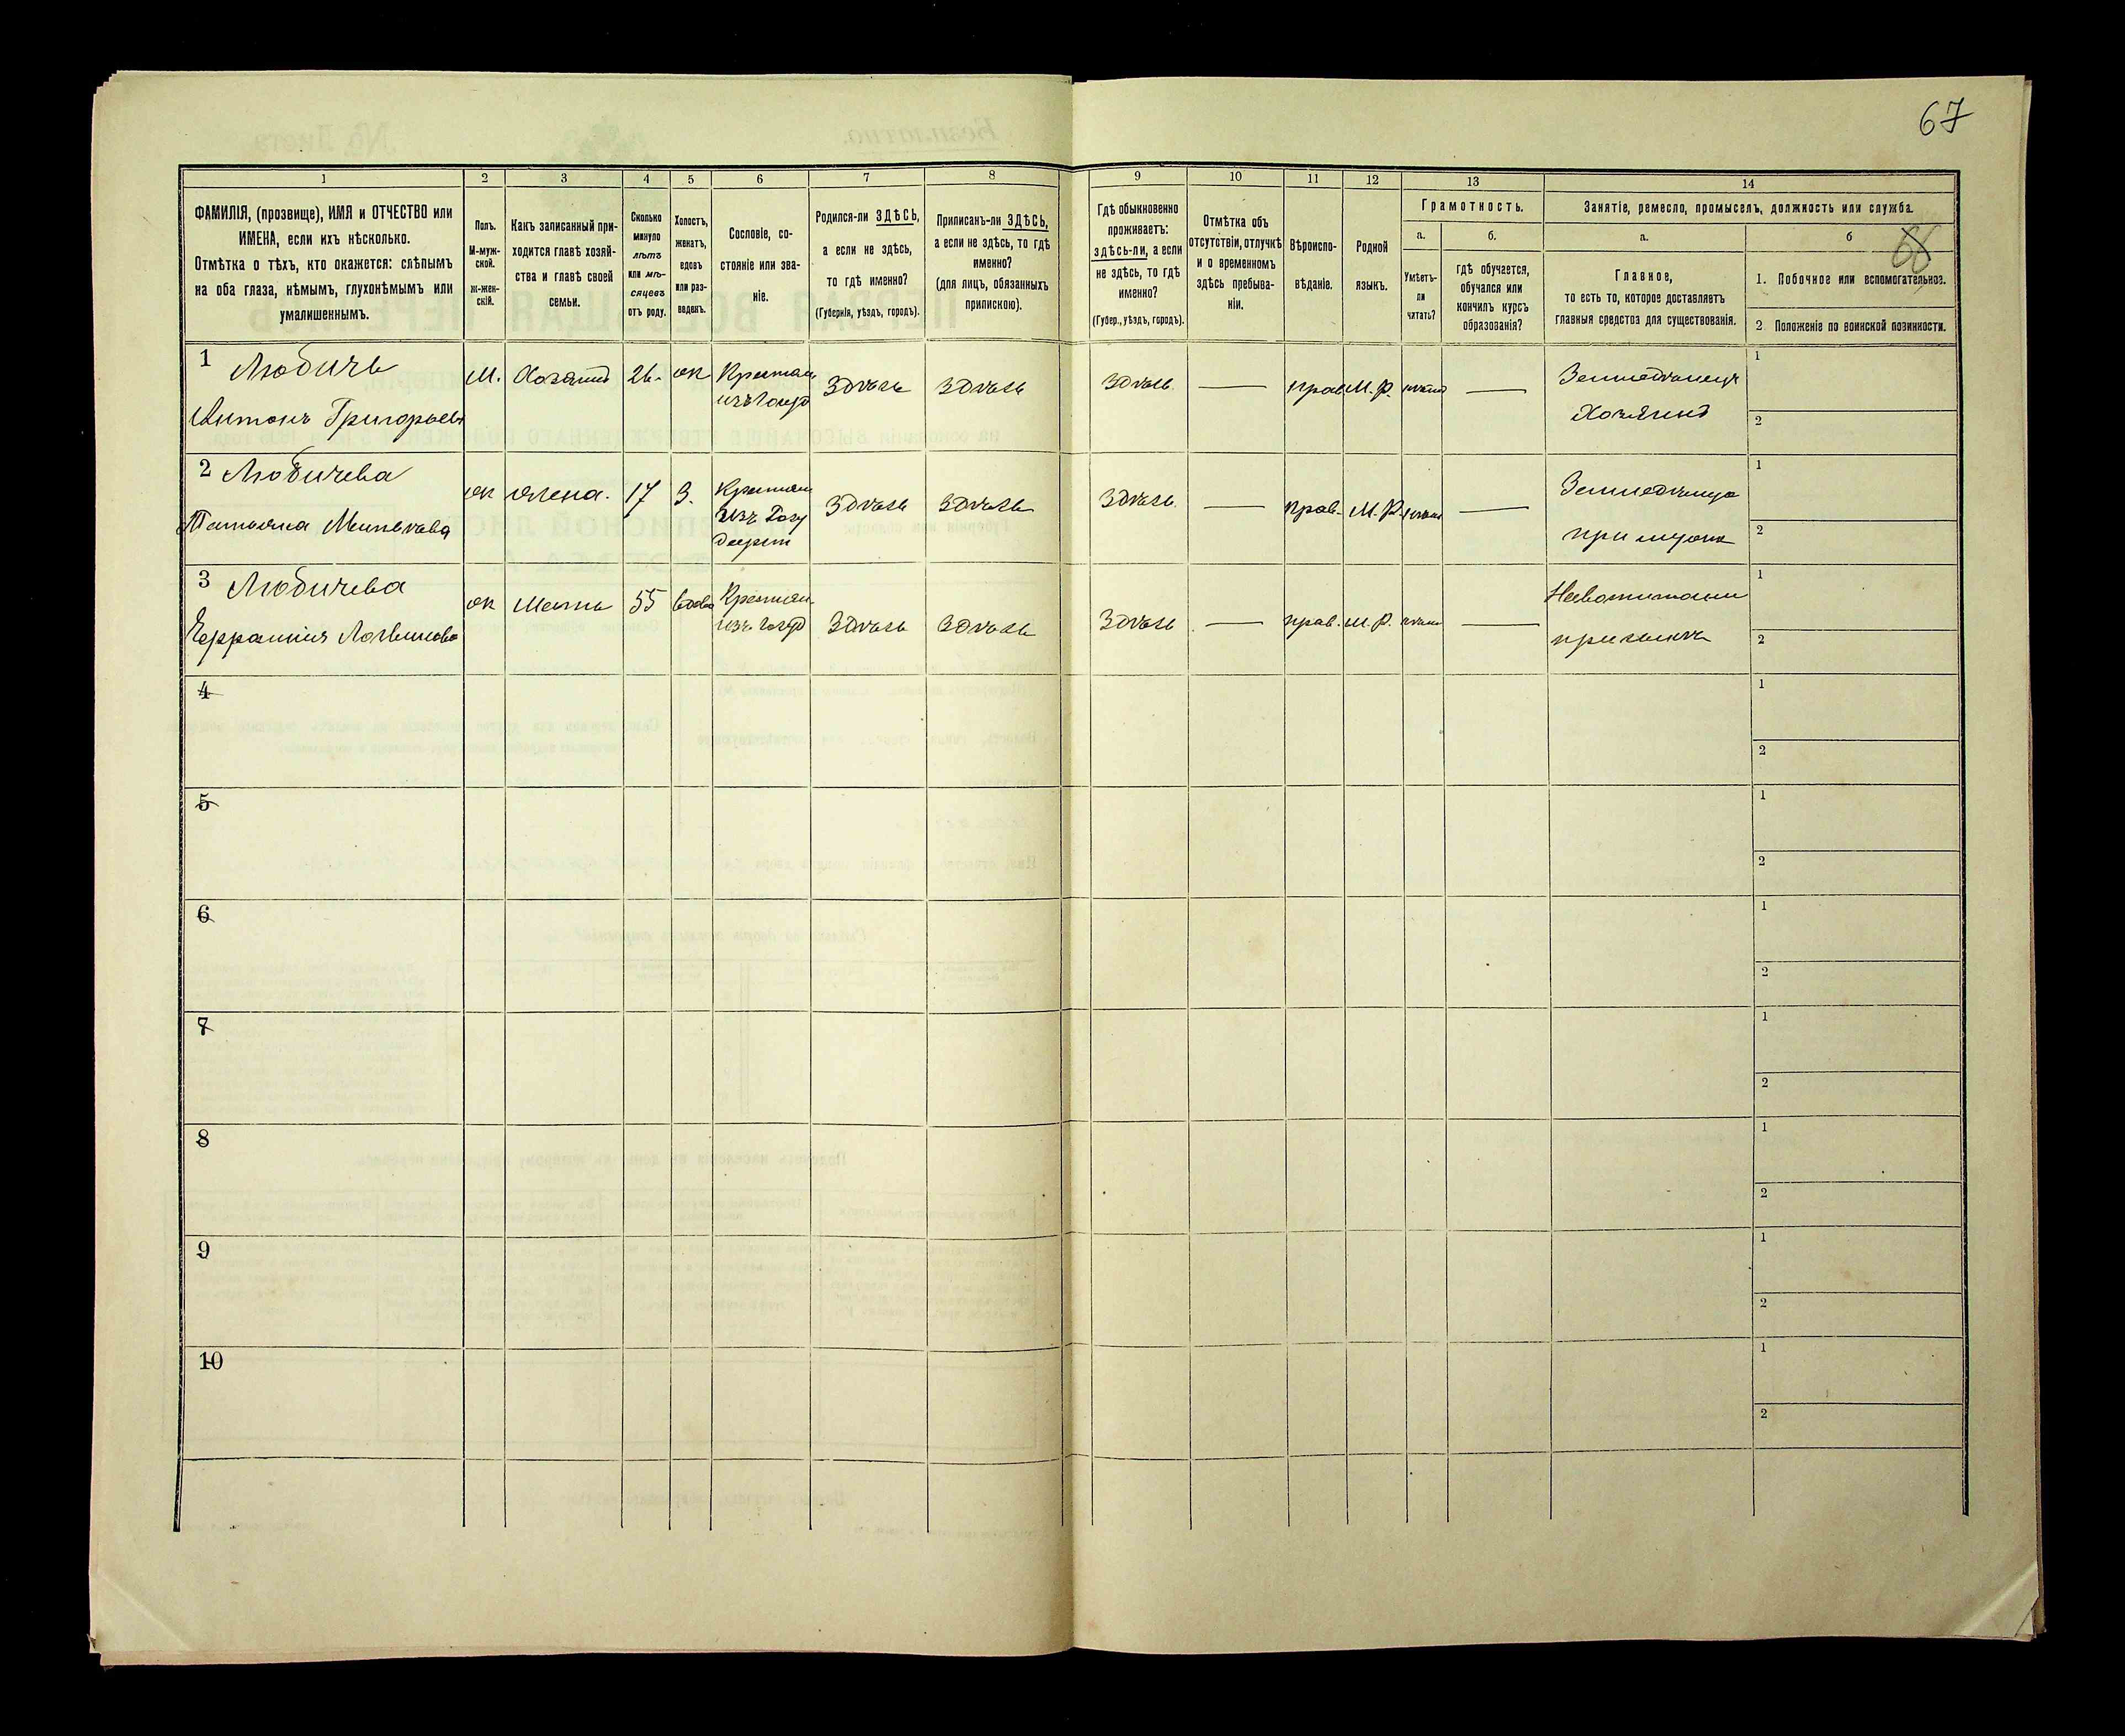 67
1
2
3
4
5
6
7
8
9
10
11
12
13
14
ФАМИЛІЯ, (прозвище), ИМЯ и ОТЧЕСТВО или
ИМЕНА, если ихъ нѣсколько.
Отмѣтка о тѣхъ, кто окажется: слѣпымъ
на оба глаза, нѣмымъ, глухонѣмымъ или
умалишеннымъ.
Полъ.
М-муж-
ской.
Ж-жен-
скій.
Какъ записанный при-
ходится главѣ хозяй-
ства и главѣ своей
семьи.
Сколько
минуло
лѣтъ
или мѣ-
сяцевъ
отъ роду.
Холостъ,
женатъ,
вдовъ
или раз-
веденъ.
Сословіе, со-
стояніе или зва-
ніе.
Родился-ли ЗДѢСЬ,
а если не здѣсь,
то гдѣ именно?
(Губернія, уѣздъ, городъ).
Приписанъ-ли ЗДѢСЬ,
а если не здѣсь, то гдѣ
именно?
(для лицъ, обязанныхъ
припискою).
Гдѣ обыкновенно
проживаетъ:
здѣсь-ли, а если
не здѣсь, то гдѣ
именно?
(Губер., уѣздъ, городъ).
Отмѣтка объ
отсутствіи, отлучкѣ
и о временномъ
здѣсь пребыва-
ніи.
Вѣроиспо-
вѣданіе.
Родной
языкъ.
Грамотность.
а.
Умѣетъ-
ли
читать?
б.
гдѣ обучается,
обучался или
кончилъ курсъ
образованія?
Занятіе, ремесло, промыселъ, должность или служба.
а.
Главное,
то есть то, которое доставляетъ
главныя средства для существованія.
б
68
1. Побочное или вспомогательное.
2 Положеніе по воинской повинности.
1 Любичь
Антонъ Григорьевъ
М.
Хозяинъ
26
ж
Крестьян
изъ госуд
Здѣсь
Здѣсь
Здѣсь.
—
прав.
М. Р.
—
Земледѣлецъ
Хозяинъ
1
2
2 Любичева
Татьяна
ж
жена.
17
З.
Крестьян
изъ Госу
Здѣсь
Здѣсь
Здѣсь
—
прав.
М. Р.
—
при мужѣ
1
2
3 Любичева
ж
мать
55
вдова
Крестьян.
изъ госуд
Здѣсь
Здѣсь
Здѣсь
—
прав.
М. Р.
—
при сынѣ
1
2
4
1
2
5
1
2
6
1
2
7
1
2
8
1
2
9
1
2
10
1
2